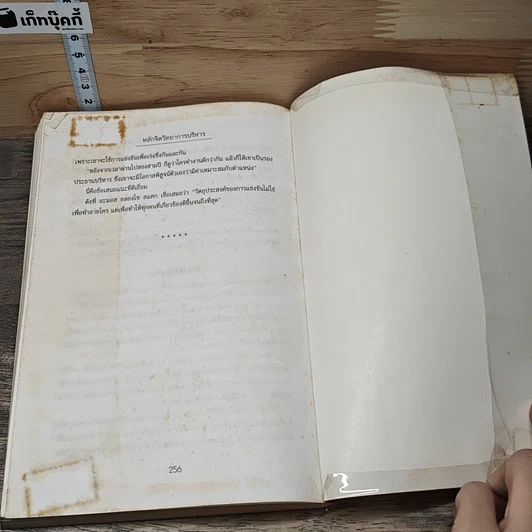 เก็ทบุ๊คกี้
6
5
4
3
2
หลักจิตวิทยาการบริหาร
เพราะเขาจะใช้การแข่งขันเพื่อเร่งซึ่งกันและกัน
"หลังจากเวลาผ่านไปสองสามปี ก็ดูว่าใครทำงานดีกว่ากัน แล้วก็ให้เขาเป็นรอง
ประธานบริหาร ซึ่งเขาจะมีโอกาสพิสูจน์ตัวเองว่ามีค่าเหมาะสมกับตำแหน่ง"
นี่คือข้อเสนอแนะที่ดีเยี่ยม
ดังที่ อะมอส อลองโซ สแตก เชื่อเสมอว่า "วัตถุประสงค์ของการแข่งขันไม่ใช่
เพื่อทำลายใคร แต่เพื่อทำให้ทุกคนที่เกี่ยวข้องดีขึ้นจนถึงที่สุด"
* * * * *
256